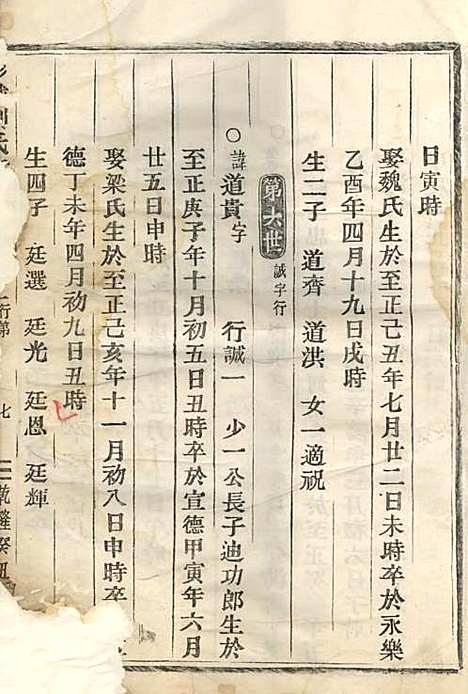 日寅時
娶魏氏生於至正己丑年七月廿二日未時卒於永樂
乙酉年四月十九日戌時
生二子 道齊 道洪 女一適祝
第六世 誠字行
○諱道貴字 行誠一 少一公長子迪功郎生於
至正庚子年十月初五日丑時卒於宣德甲寅年六月
廿五日申時
娶梁氏生於至正己亥年十一月初八日申時卒
德丁未年四月初九日丑時
生四子 廷選 廷光 廷恩 廷輝
氏
行第 七 乾隆癸丑